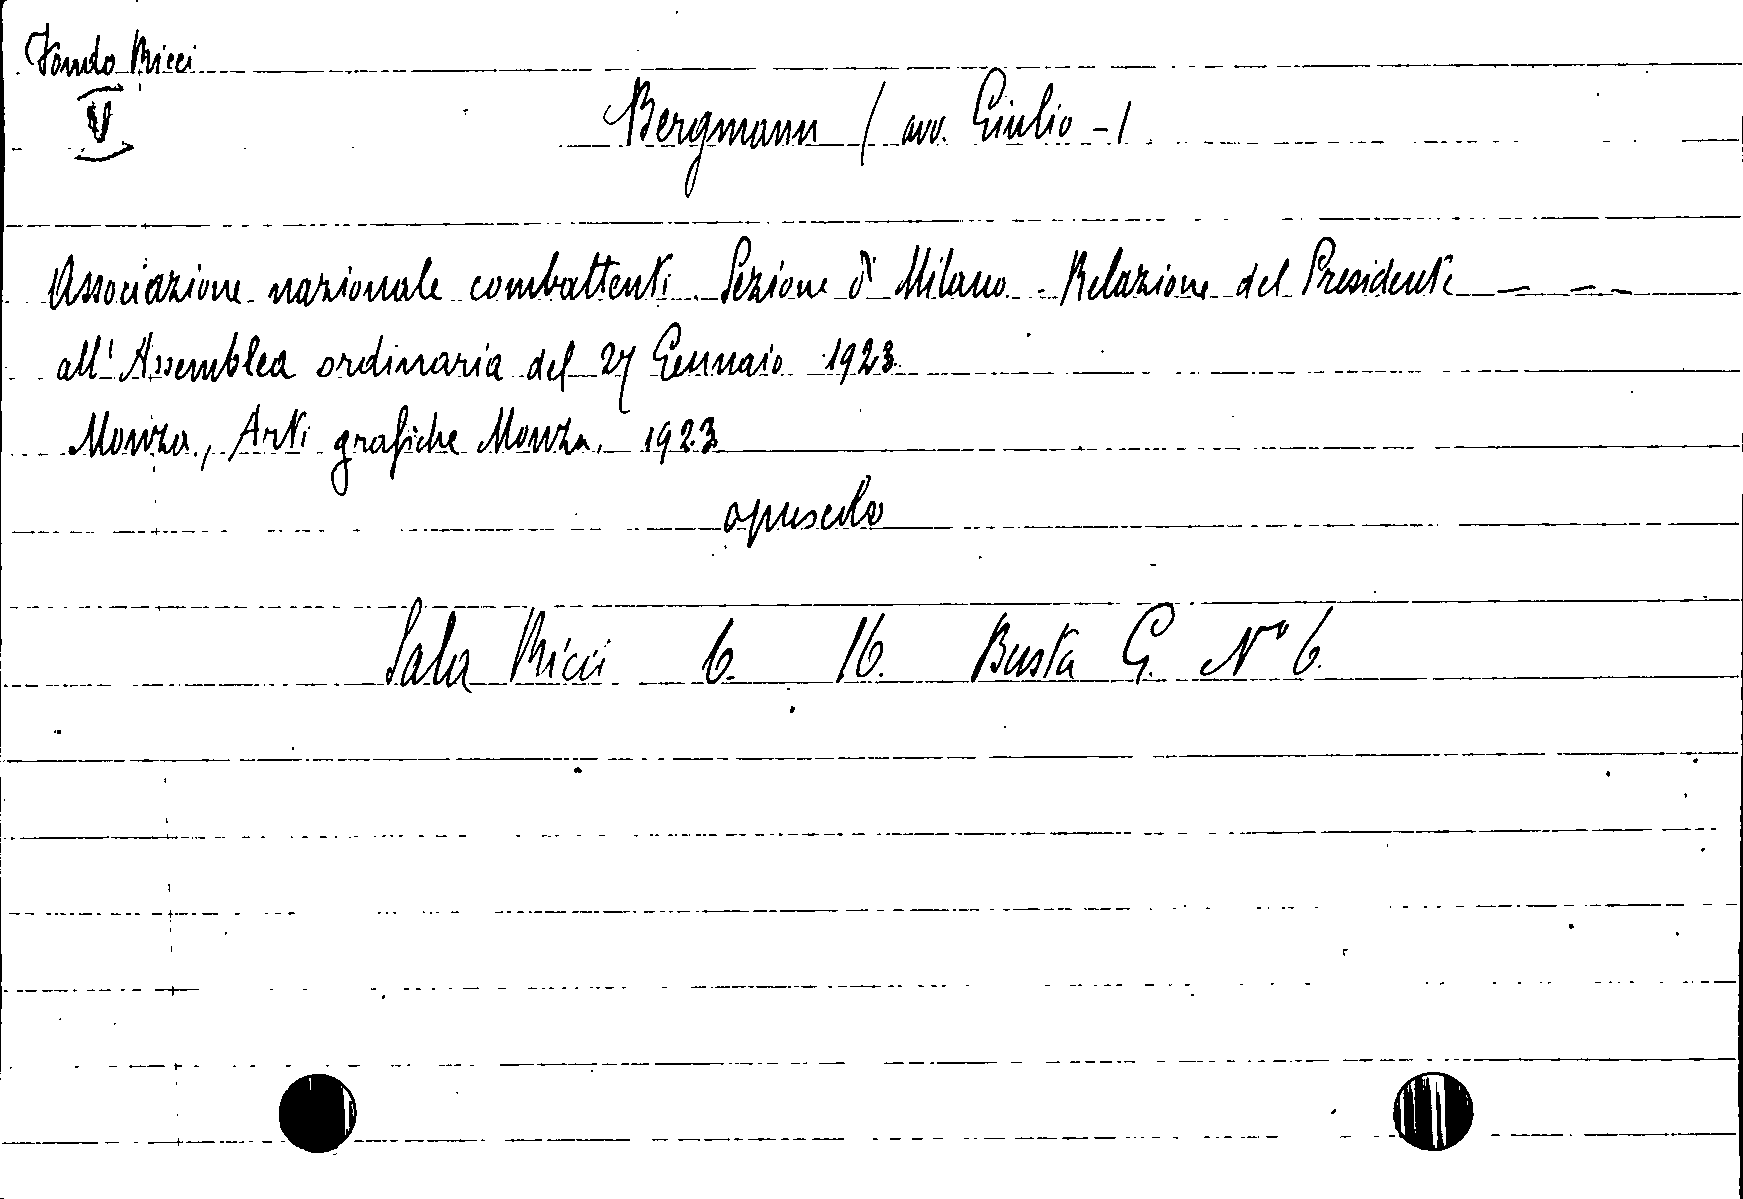 Fondo Ricci
V
Bergmann / avv. Giulio - /
Associazione nazionale combattenti. Sezione di Milano - Relazione del Presidente — — —
all'Assemblea ordinaria del 27 Gennaio 1923.
Monza, Arti grafiche Monza, 1923
opuscolo
Sala Ricci 6. 16. Busta G. N° 6.